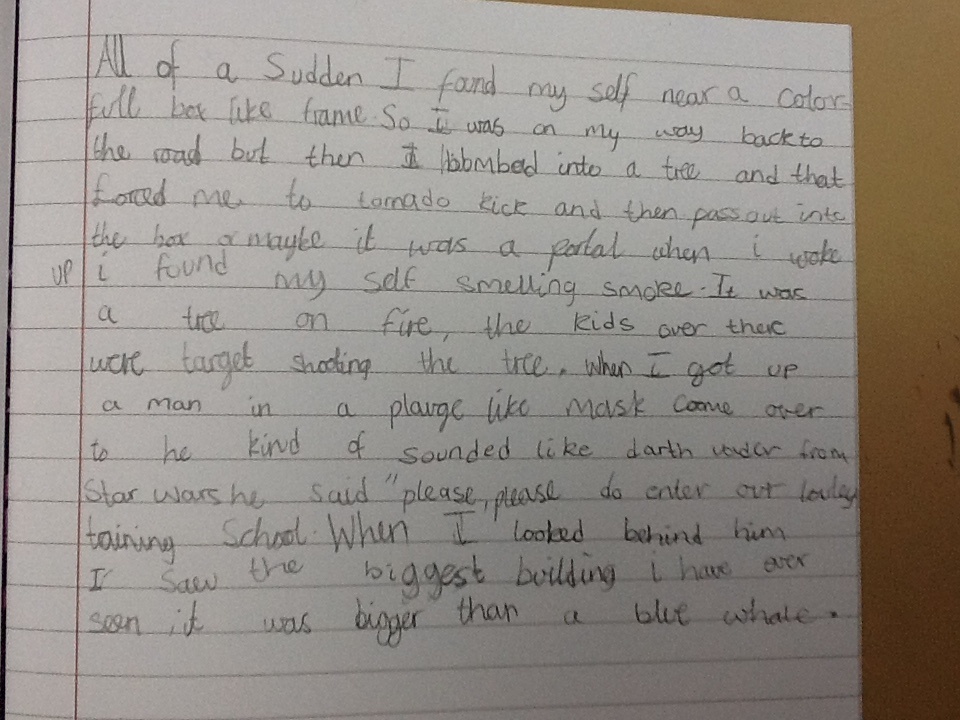 All of a Sudden I found my self near a color-
full box like frame. So I was on my way back to
the road but then I bombed into a tree and that
forced me to tornado kick and then pass out into
the box or maybe it was a portal when i woke
up i found my self smelling smoke. It was
a tree on fire, the kids over there
were target shooting the tree. when I got up
a man in a plauge like mask come over
to he kind of sounded like darth vader from
Star Wars he said "please, please do enter our lovley
taining School. When I looked behind him
I saw the biggest building i have ever
seen it was bigger than a blue whale.